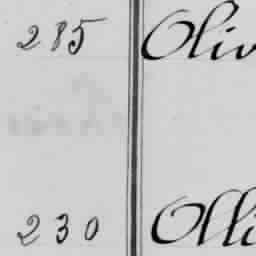 285 Oliv
230 Olli